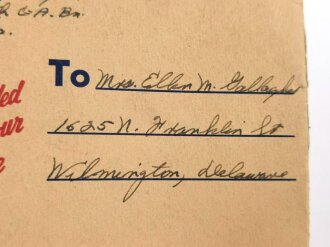 & A. Bn.
To Mrs. Ellen M. Gallagher
1625 N. Franklin St
Wilmington, Delaware